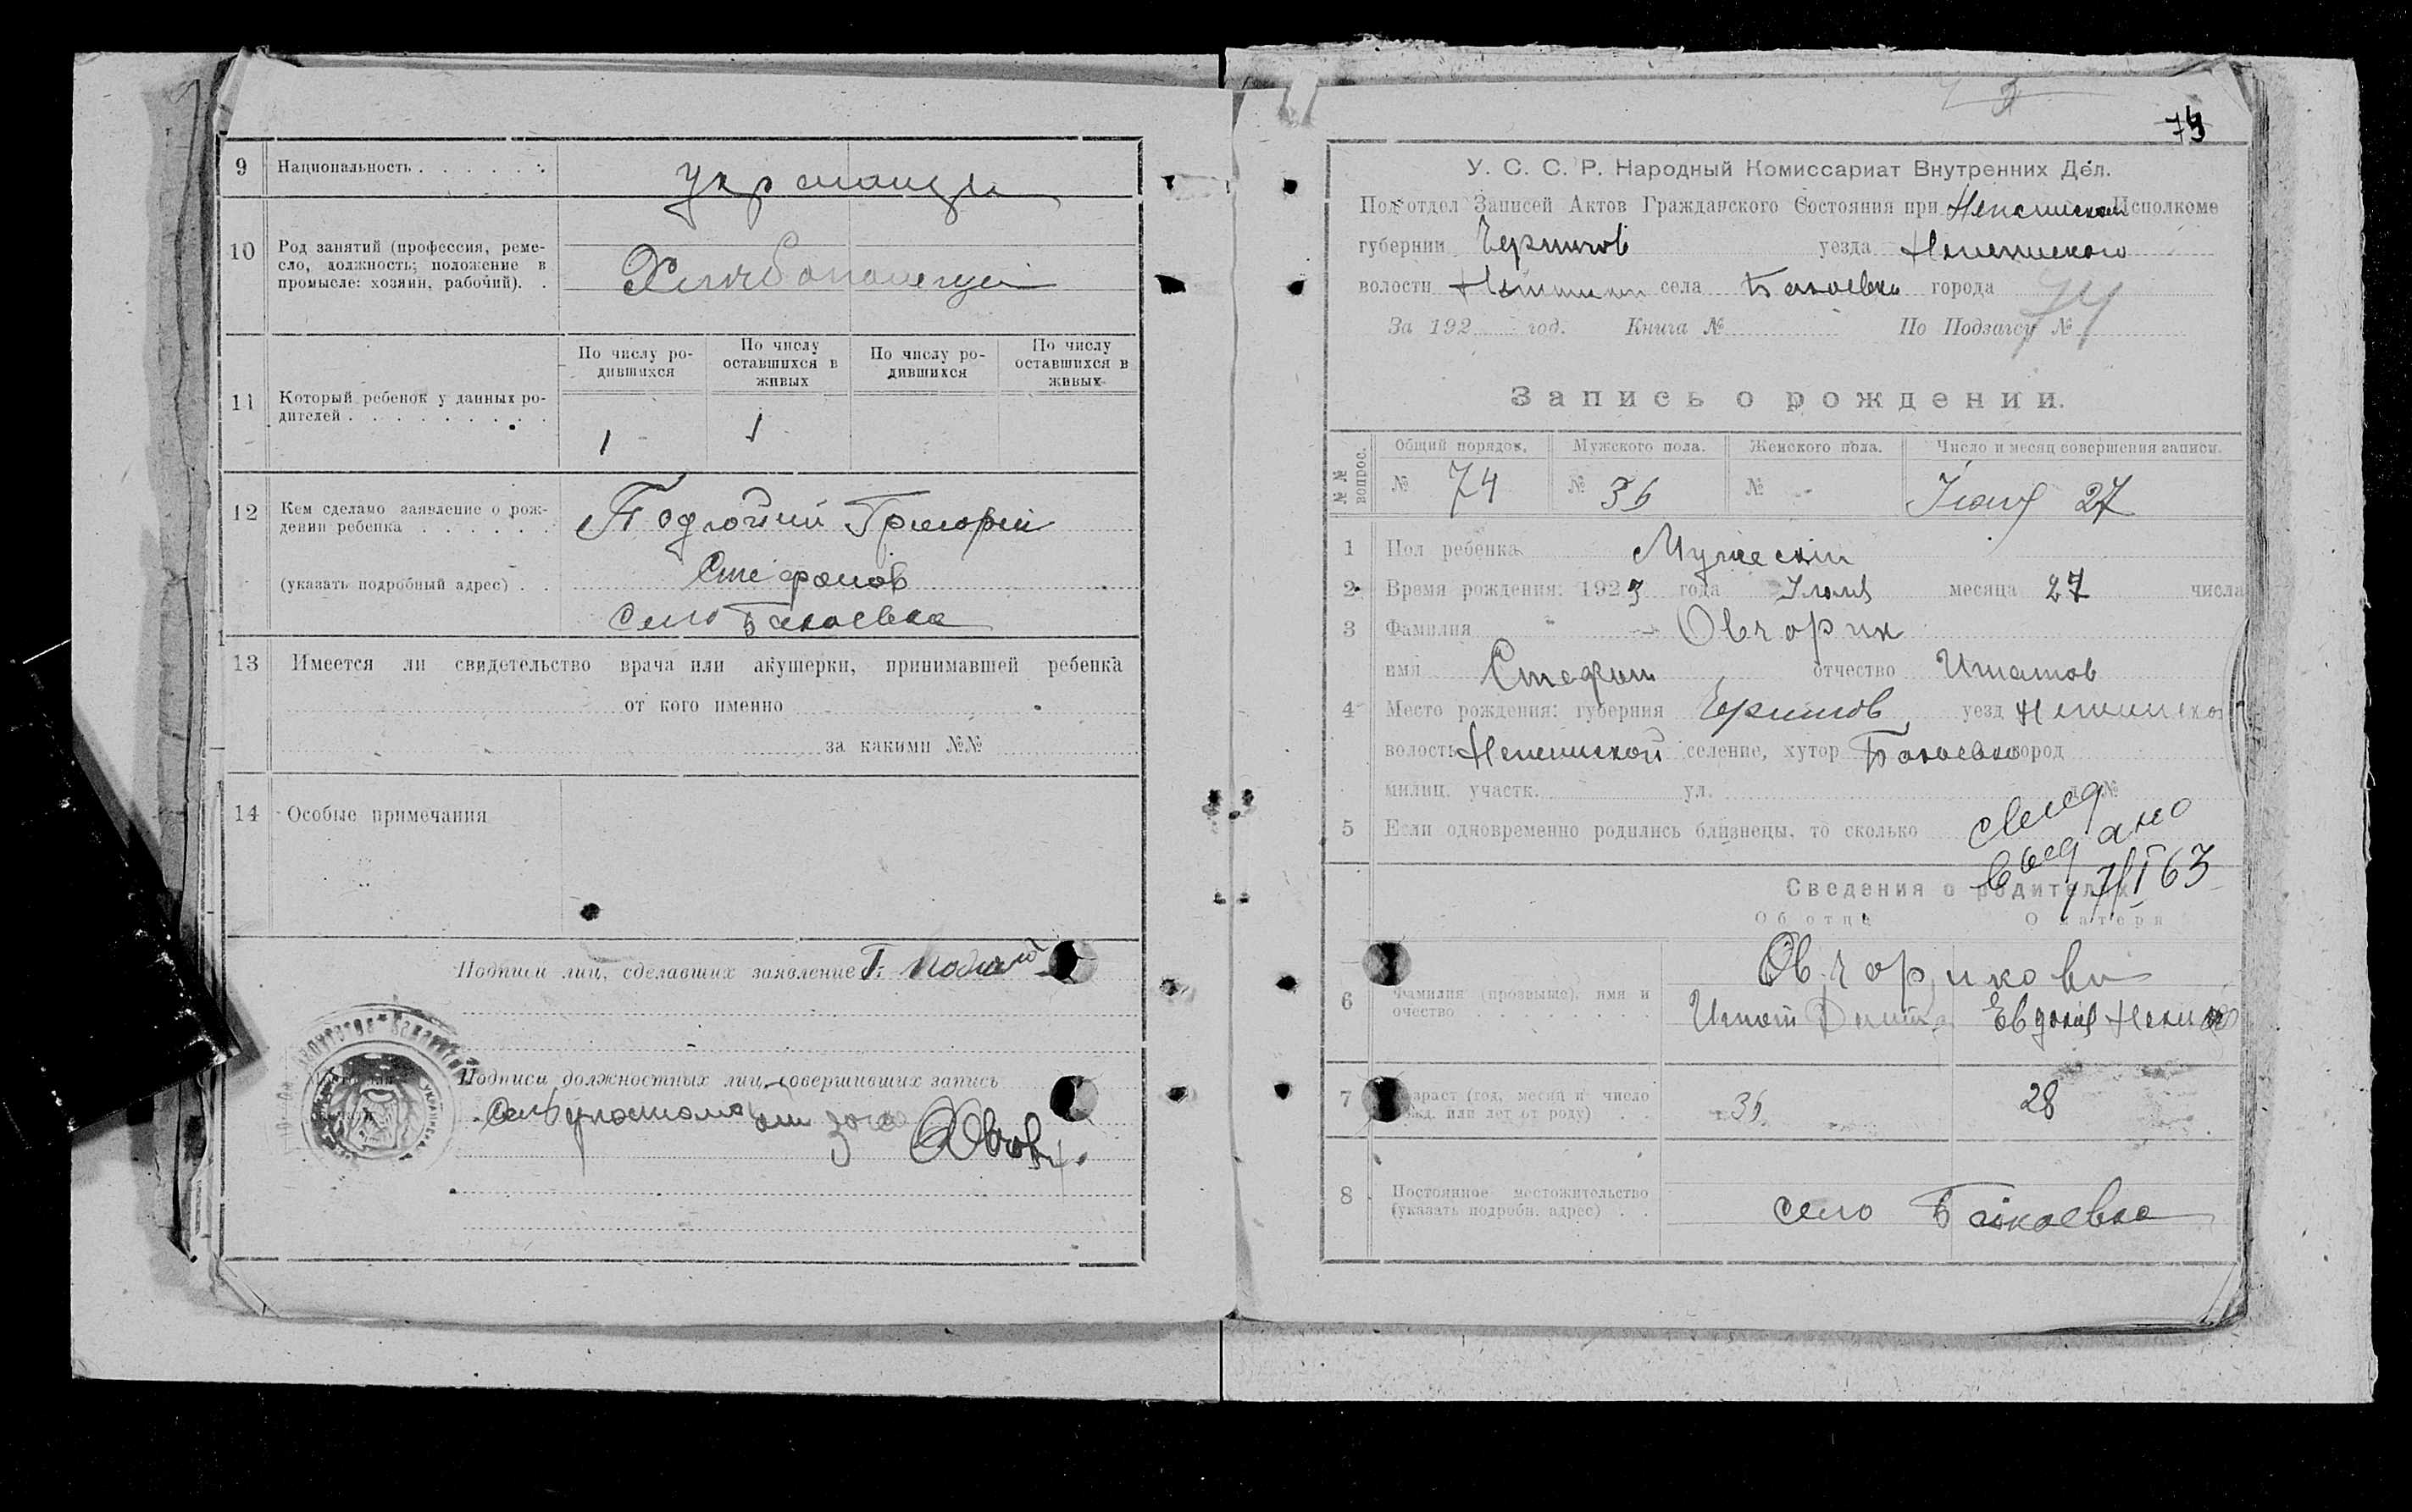 9 Национальность . . . . . .
украинцы
10 Род занятий (профессия, реме-
сло, должность; положение в
промысле: хозяин, рабочий). .
По числу ро-
дившихся
По числу
оставшихся в
живых
По числу ро-
дившихся
По числу
оставшихся в
живых
11 Который ребенок у данных ро-
дителей . . . . . . . . .
1 1
12 Кем сделано заявление о рож-
дении ребенка . . . . . .
Григорий
(указать подробный адрес) . .
Стефанов
село Бакаевка
13 Имеется ли свидетельство врача или акушерки, принимавшей ребенка
от кого именно
за какими №№
14 Особые примечания
Подписи лиц, сделавших заявление: Г.
Подписи должностных лиц, совершивших запись
74
У. С. С. Р. Народный Комиссариат Внутренних Дел.
Подотдел Записей Актов Гражданского Состояния при Исполкоме
губернии Чернигов уезда Неженского
волости села Бакаевки города
За 192 год. Книга № По Подзагсу № 74
Запись о рождении.
№№ вопрос.
Общий порядок. Мужского пола. Женского пола. Число и месяц совершения записи.
№ 74 № 36 № - 27
1 Пол ребенка Мужескій
2 Время рождения: 1923 года Июля месяца 27 числа
3 Фамилия Овчорик
имя Стефан отчество Игнатов
4 Место рождения: губерния Чернигов, уезд
волость Неженской селение, хутор Бакаевка город
милиц. участк. ул. д. №
5 Если одновременно родились близнецы, то сколько
выдано
17/I 63
Сведения о родителях
Об отце О матери
6 Фамилия (прозвище), имя и
очество . . . . . . . . .
Овчорикови
Игнат Евдокія
7 Возраст (год, месяц и число
рожд. или лет от роду) . .
36 28
8 Постоянное местожительство
(указать подробн. адрес) . .
село Бакаевка